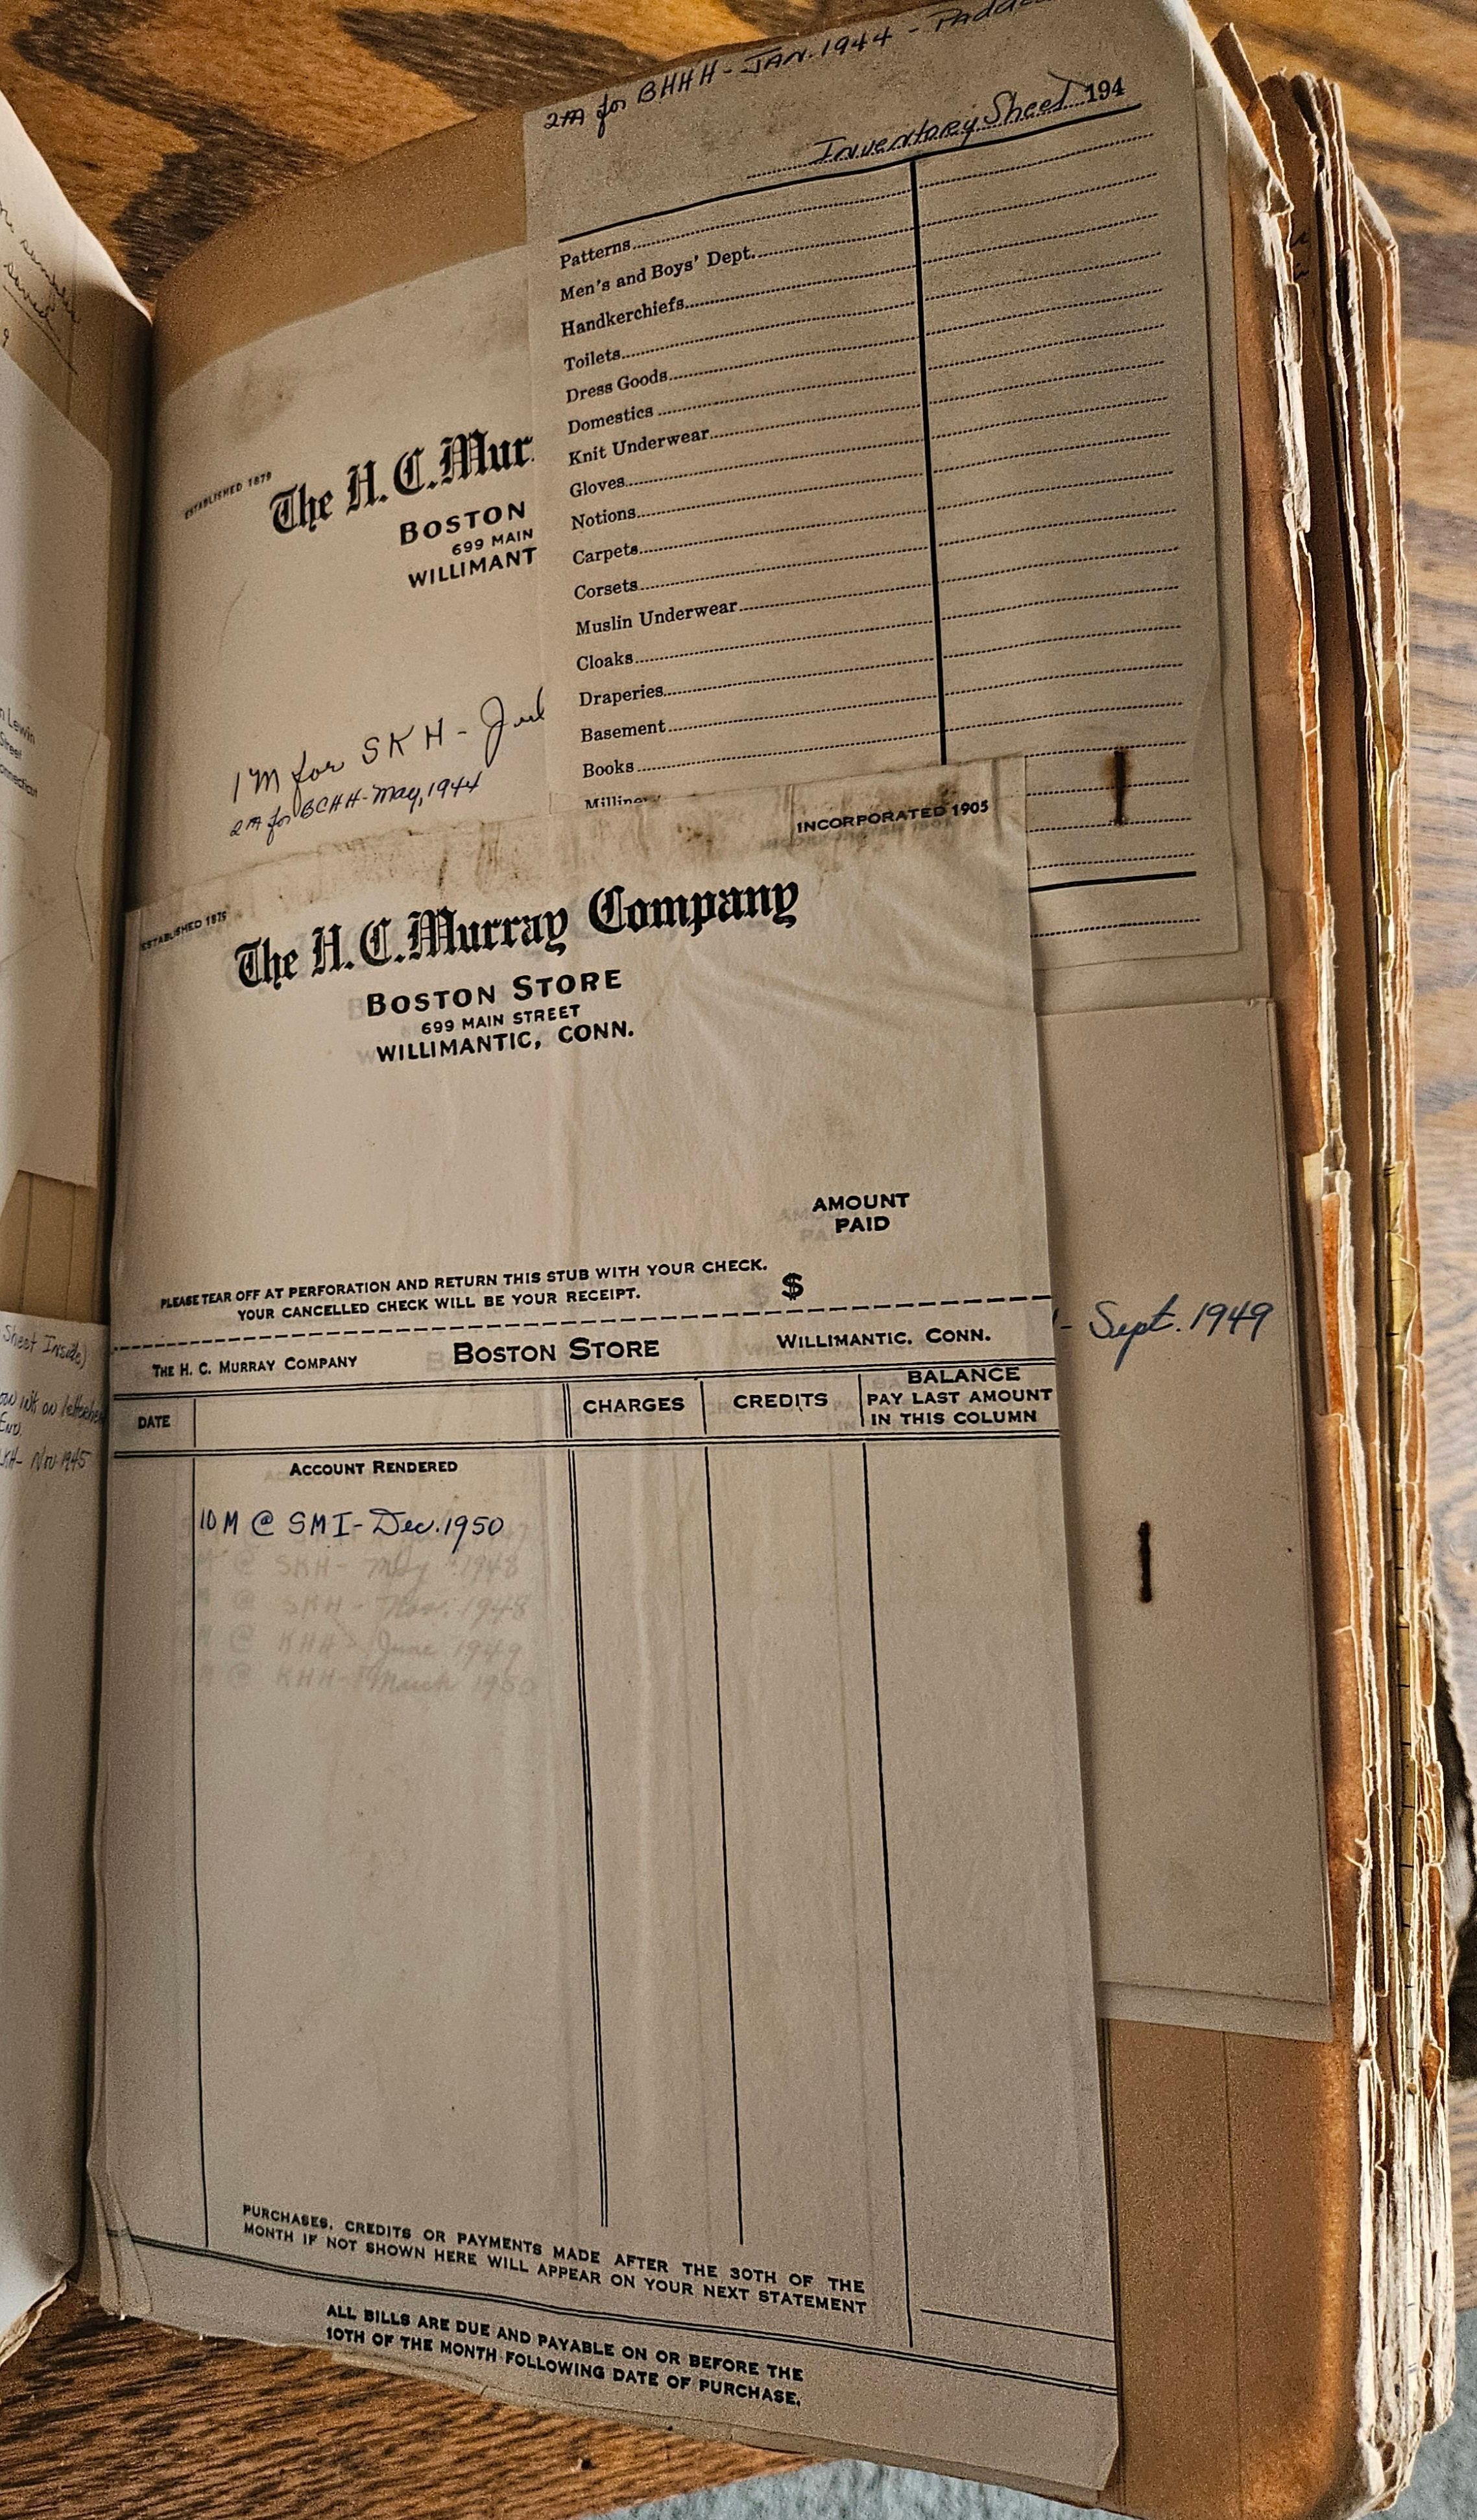 2M for BHHH - JAN. 1944 -
Inventory Sheet 194
Patterns
Men's and Boys' Dept.
Handkerchiefs
Toilets
Dress Goods
Domestics
Knit Underwear
Gloves
Notions
Carpets
Corsets
Muslin Underwear
Cloaks
Draperies
Basement
Books
ESTABLISHED 1879
The H. C. Mur
BOSTON
699 MAIN
WILLIMANT
1M for SKH -
2M for BCHH - May, 1944
INCORPORATED 1905
ESTABLISHED 1879
The H. C. Murray Company
BOSTON STORE
699 MAIN STREET
WILLIMANTIC, CONN.
AMOUNT
PAID
PLEASE TEAR OFF AT PERFORATION AND RETURN THIS STUB WITH YOUR CHECK.
YOUR CANCELLED CHECK WILL BE YOUR RECEIPT.
$
THE H. C. MURRAY COMPANY BOSTON STORE WILLIMANTIC, CONN.
DATE CHARGES CREDITS BALANCE
PAY LAST AMOUNT
IN THIS COLUMN
ACCOUNT RENDERED
10 M @ SMI - Dec. 1950
@ SKH - May 1948
@ SKH - Nov. 1948
M @ KHH - June 1949
M @ KHH - March 1950
PURCHASES, CREDITS OR PAYMENTS MADE AFTER THE 30TH OF THE
MONTH IF NOT SHOWN HERE WILL APPEAR ON YOUR NEXT STATEMENT
ALL BILLS ARE DUE AND PAYABLE ON OR BEFORE THE
10TH OF THE MONTH FOLLOWING DATE OF PURCHASE.
- Sept. 1949
Lewin
Street
Sheet Inside)
ink on
- Nov 1945